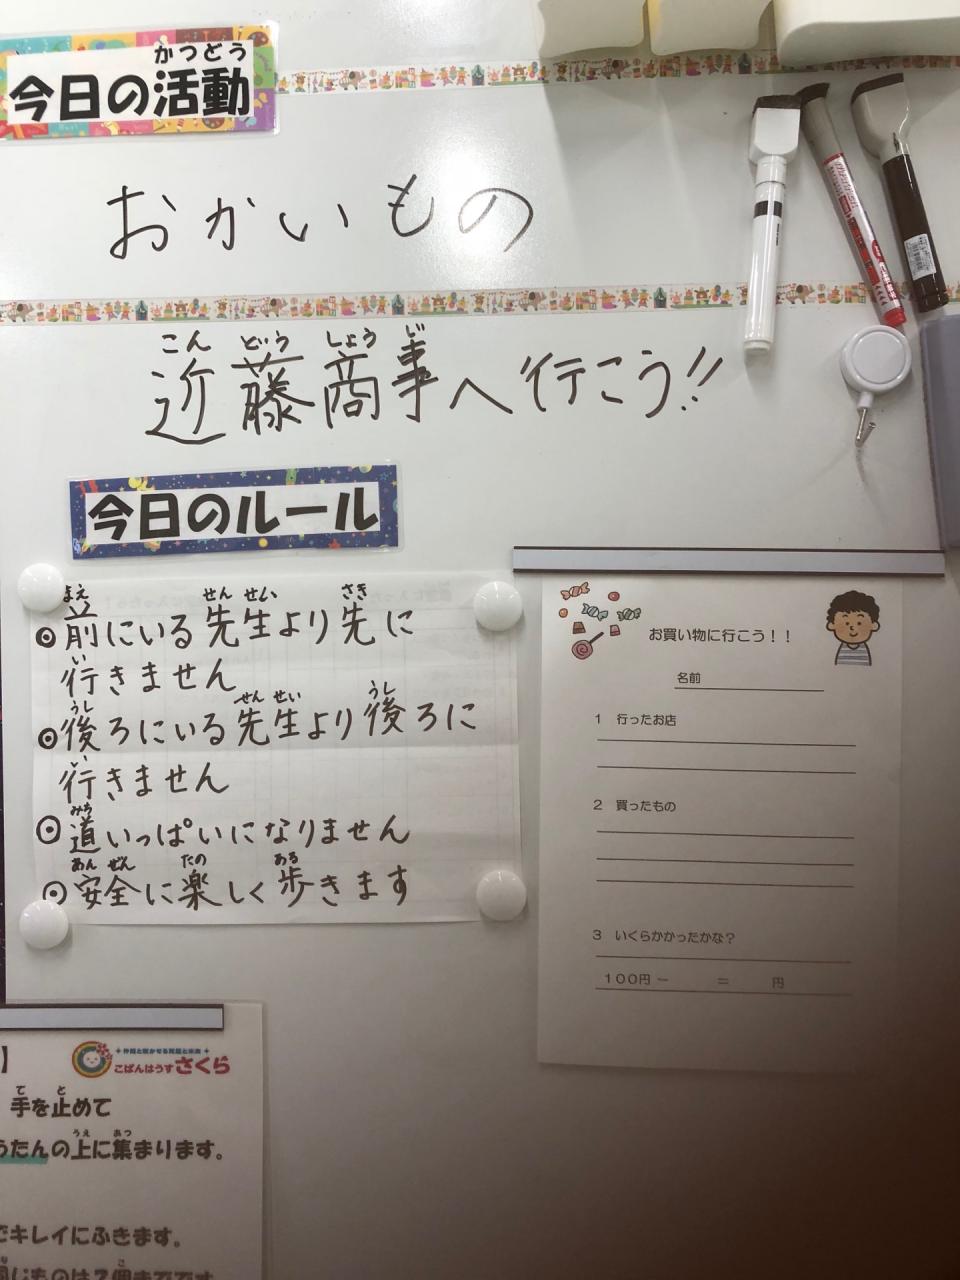 かつどう
今日の活動
おかいもの
こん どう しょう じ
近藤商事へ行こう!!
今日のルール
まえ せん せい さき
◎前にいる先生より先に
い
行きません
うし せん せい うし
◎後ろにいる先生より後ろに
い
行きません
みち
◎道いっぱいになりません
あん ぜん たの ある
◎安全に楽しく歩きます
お買い物に行こう！！
名前
1 行ったお店
2 買ったもの
3 いくらかかったかな？
100円 − ＝ 円
】
こぱんはうすさくら
て と
手を止めて
うえ あつ
うたんの上に集まります。
でキレイにふきます。
こ
同じものは2個までです